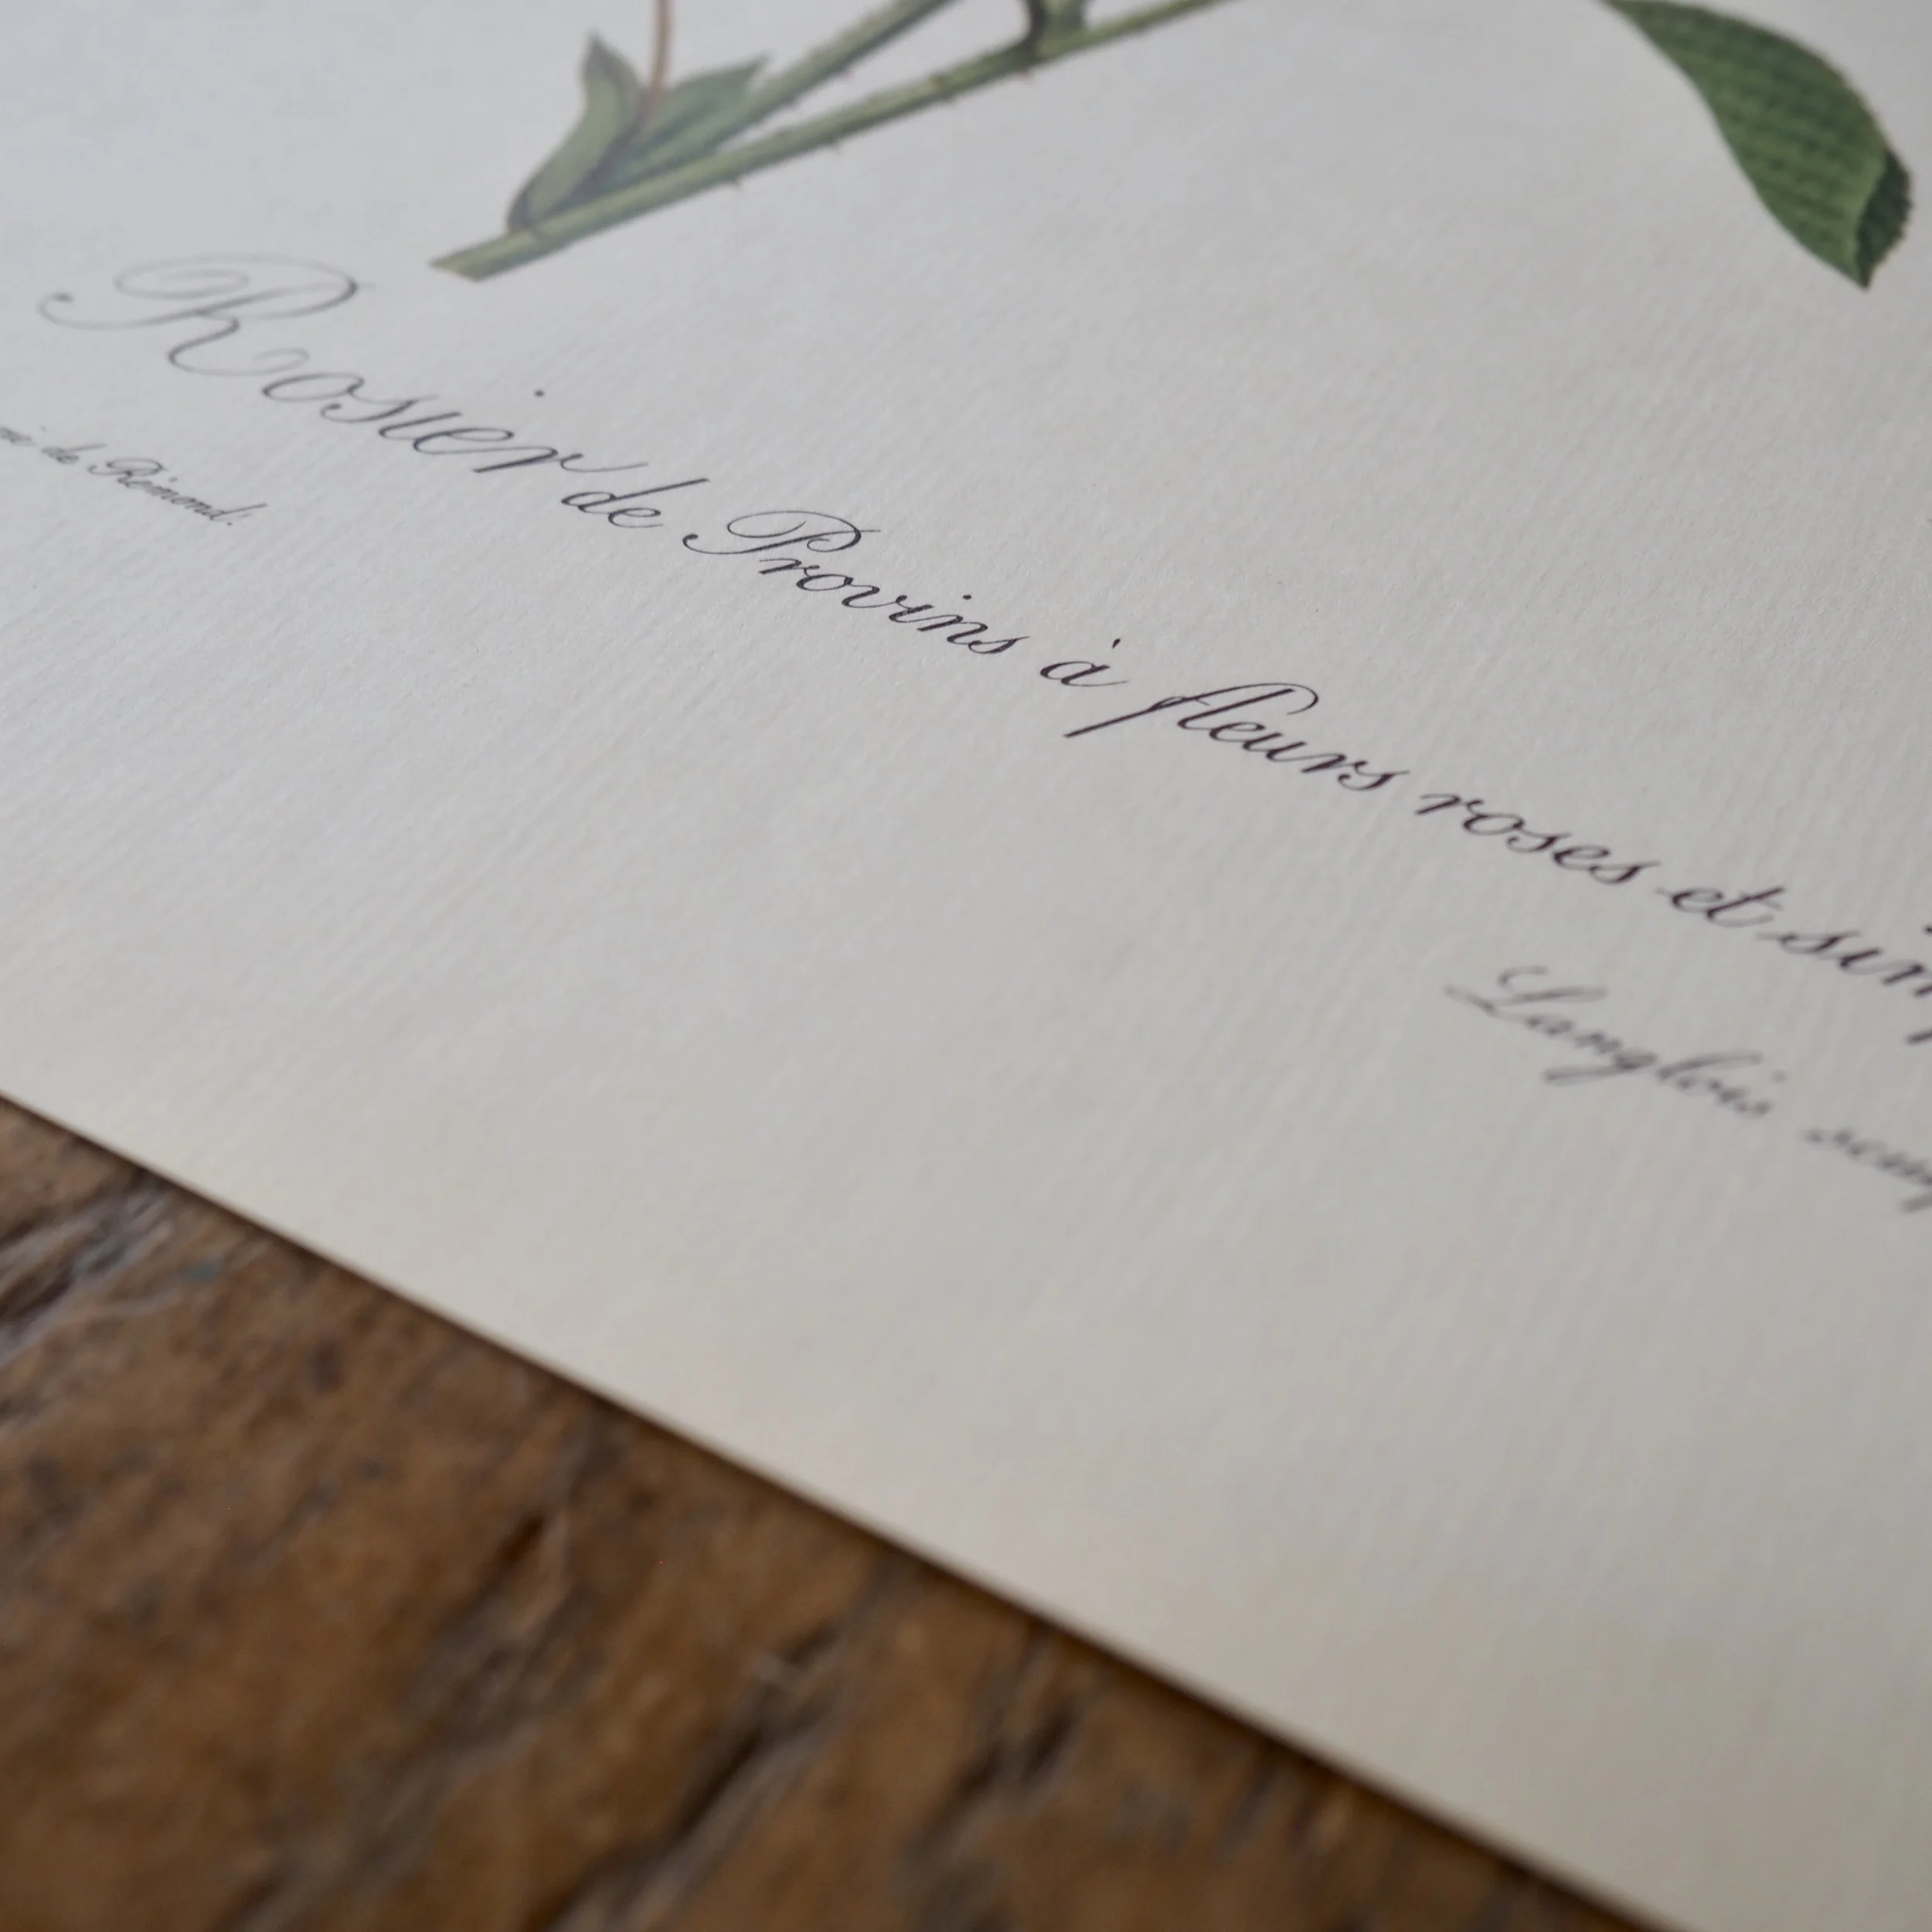 Rosier de Provins à fleurs roses et sim
de Rémond.
Langlois